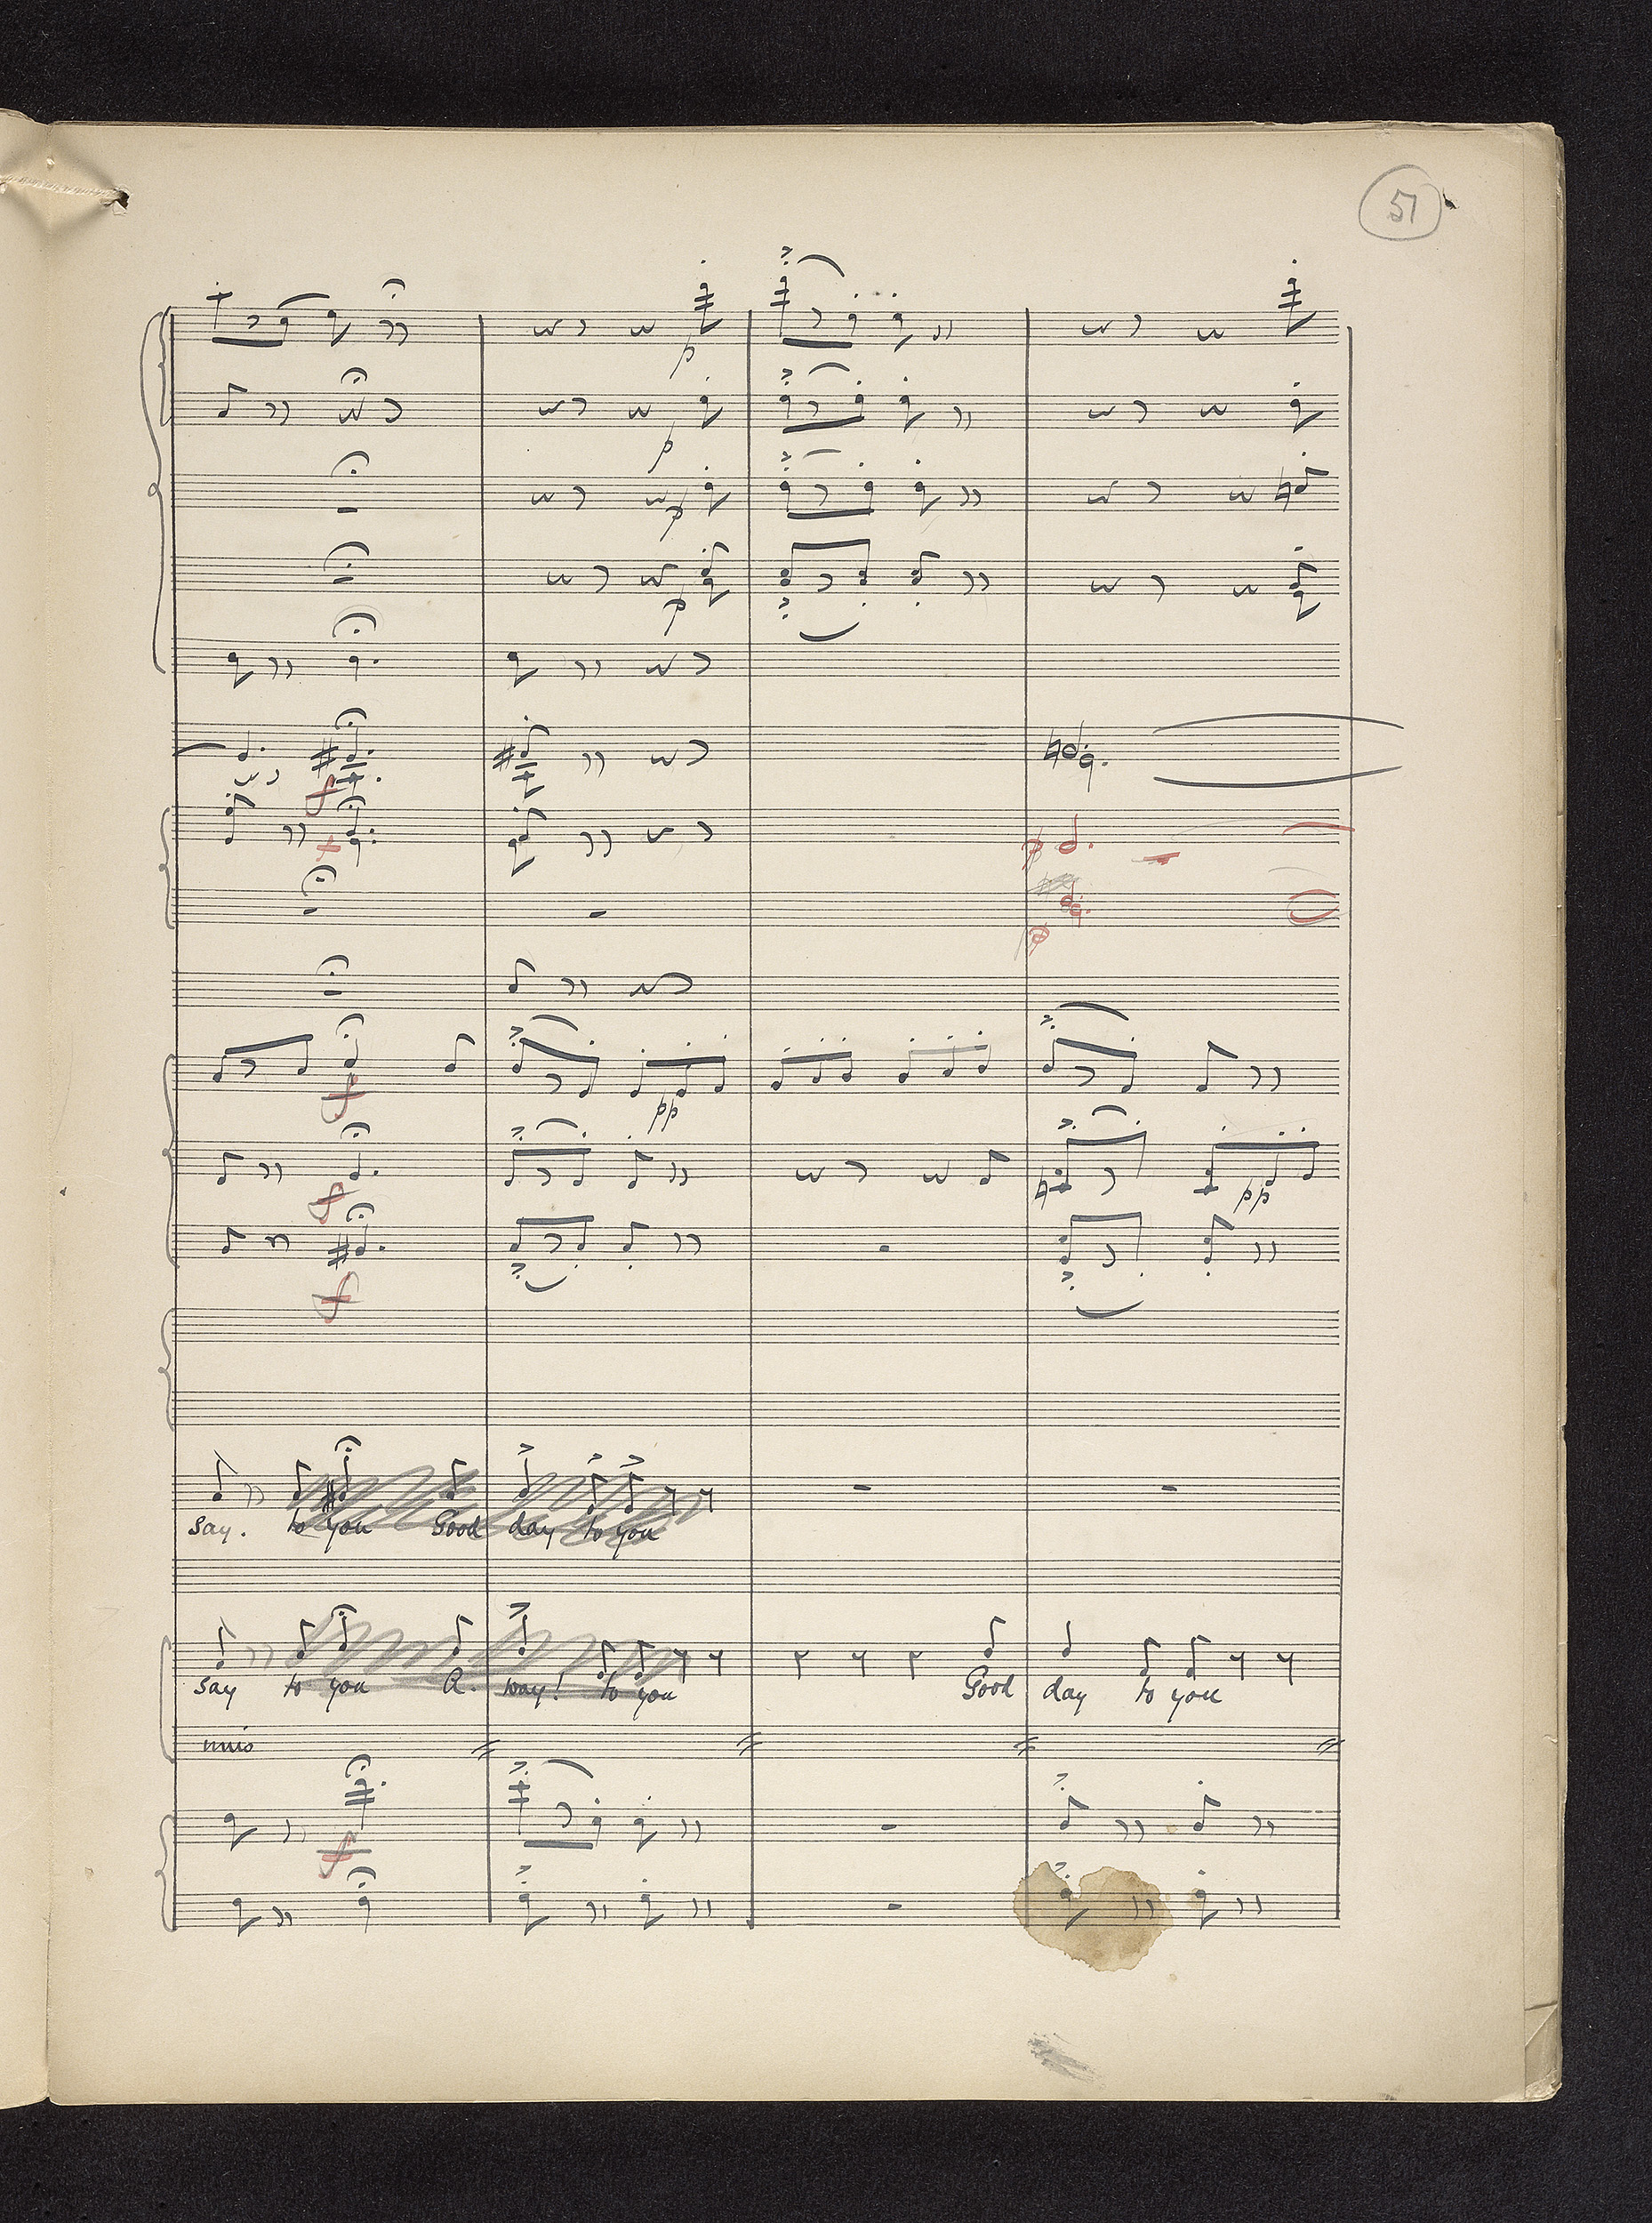 51
p
p
p
p
f
f
p
p
f
pp
f
pp
f
say. to you Good day to you
say to you A. way! to you Good day to you
unis
f